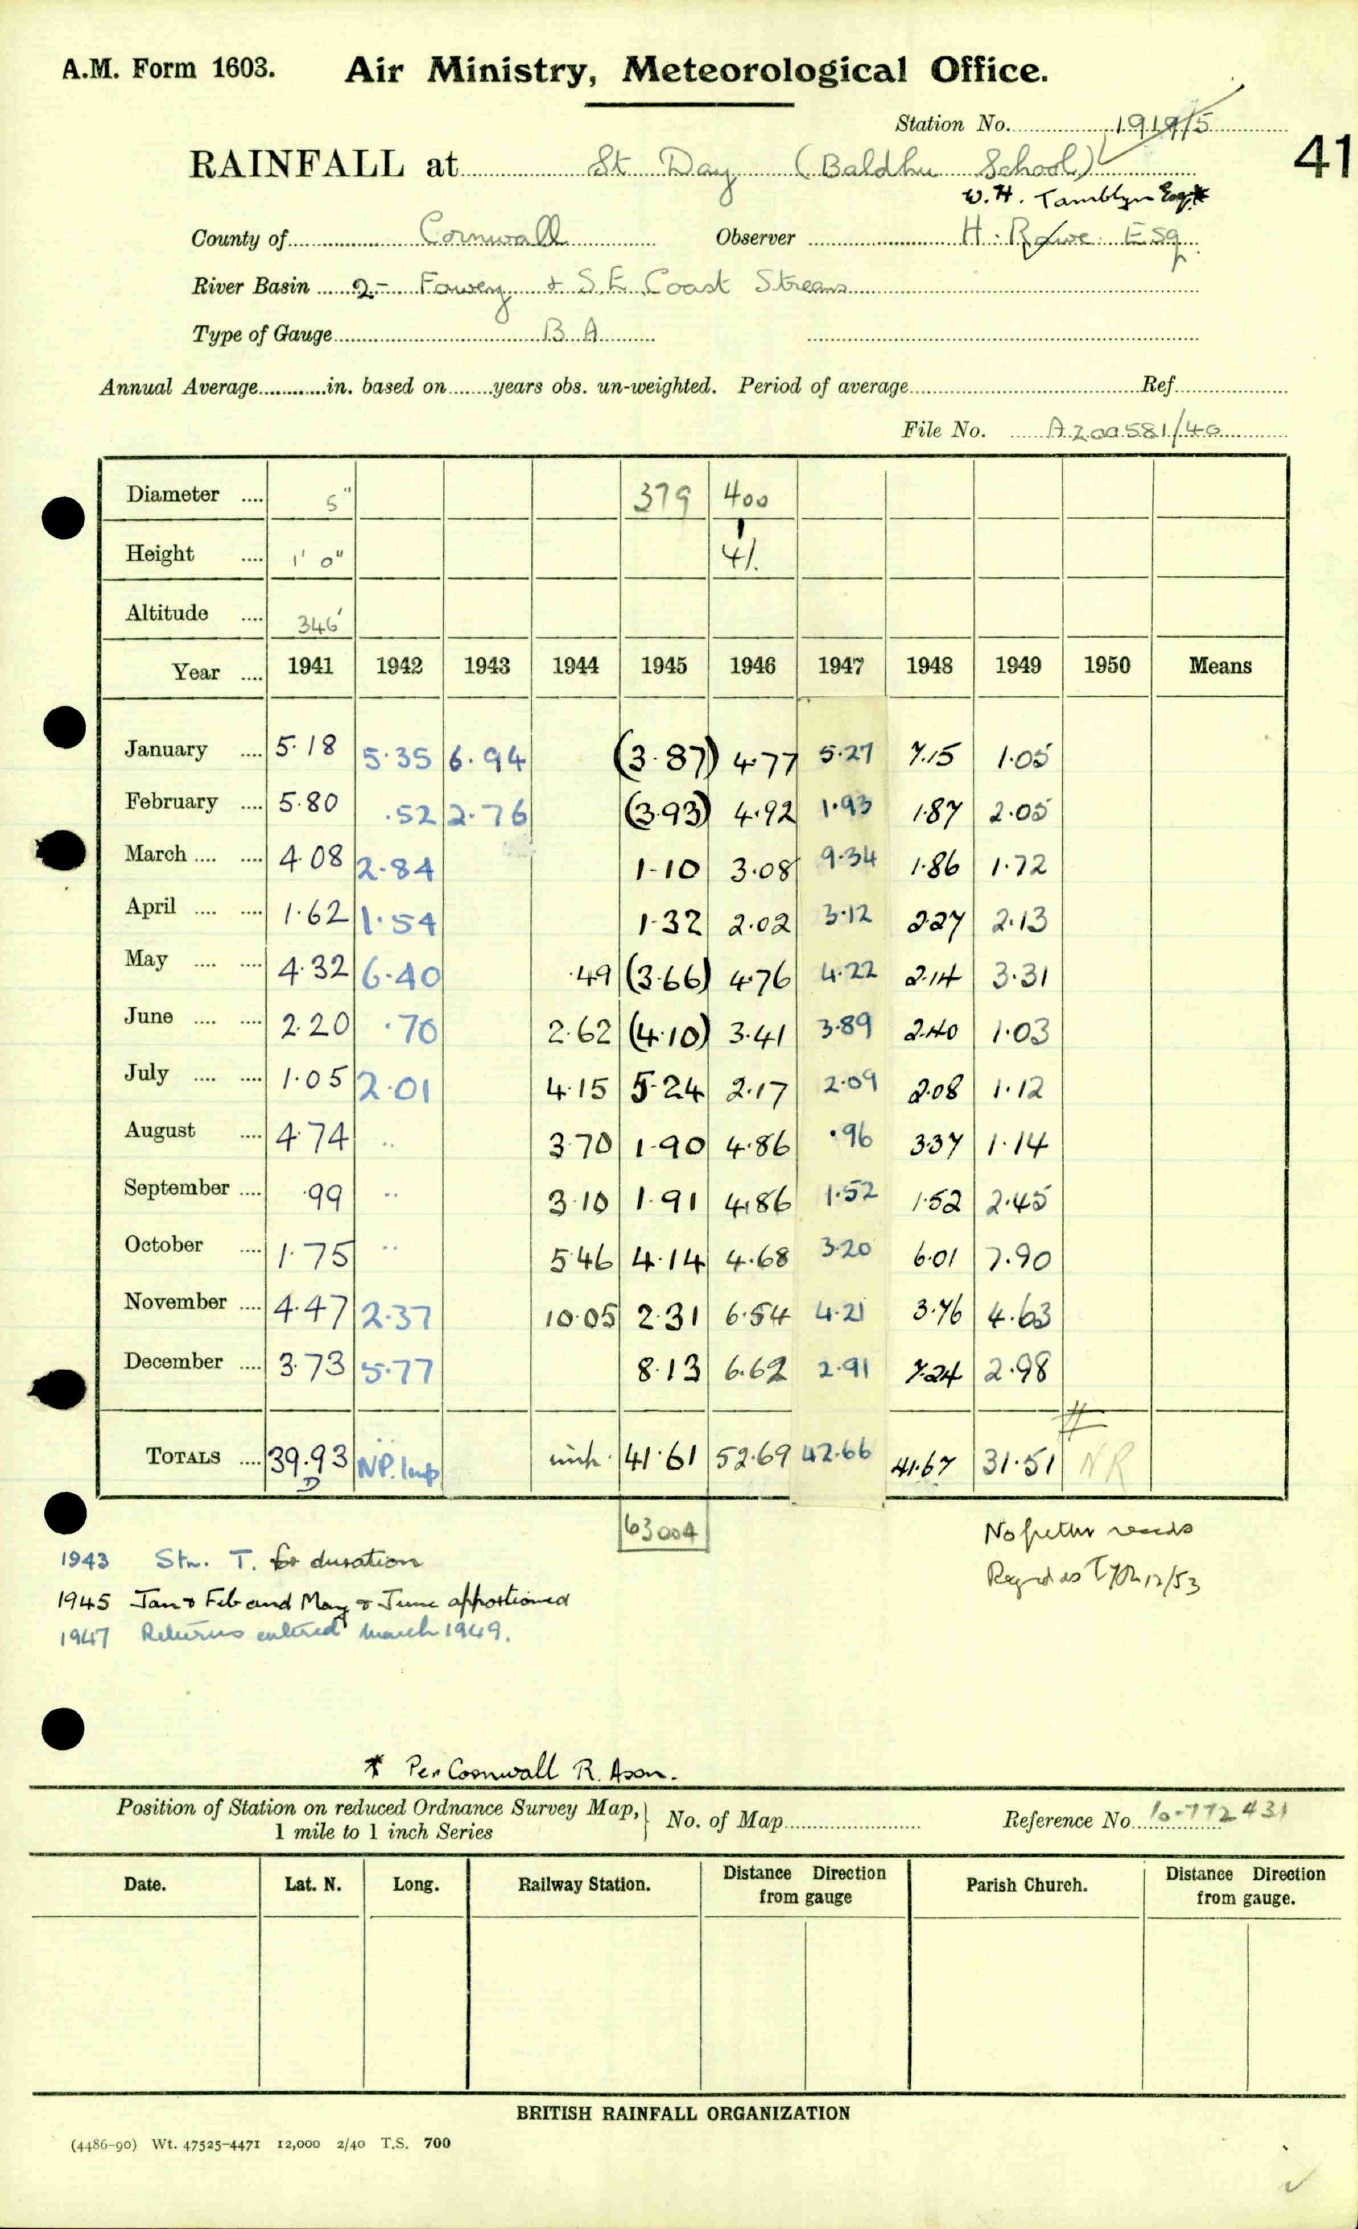 A.M. Form 1603. Air Ministry, Meteorological Office.
Station No. 1919/5
41
RAINFALL at St Day (Baldhu School)
W.H. Tamblyn Esq *
County of Cornwall Observer H. Rowe Esq
River Basin 2- Fowey & S.E. Coast Streams
Type of Gauge B A
Annual Average in. based on years obs. un-weighted. Period of average Ref.
File No. A200581/40
Diameter .... 5" 379 400
Height .... 1' 0" 41.
Altitude .... 346'
Year .... 1941 1942 1943 1944 1945 1946 1947 1948 1949 1950 Means
January .... 5.18 5.35 6.94 (3.87) 4.77 5.27 7.15 1.05
February .... 5.80 .52 2.76 (3.93) 4.92 1.93 1.87 2.05
March .... .... 4.08 2.84 1.10 3.08 9.34 1.86 1.72
April .... .... 1.62 1.54 1.32 2.02 3.12 2.27 2.13
May .... .... 4.32 6.40 .49 (3.66) 4.76 4.22 2.14 3.31
June .... .... 2.20 .70 2.62 (4.10) 3.41 3.89 2.40 1.03
July .... .... 1.05 2.01 4.15 5.24 2.17 2.09 2.08 1.12
August .... 4.74 .. 3.70 1.90 4.86 .96 3.37 1.14
September .... .99 .. 3.10 1.91 4.86 1.52 1.52 2.45
October .... 1.75 .. 5.46 4.14 4.68 3.20 6.01 7.90
November .... 4.47 2.37 10.05 2.31 6.54 4.21 3.76 4.63
December .... 3.73 5.77 8.13 6.62 2.91 7.24 2.98
TOTALS .... 39.93 NP. Imp 41.61 52.69 42.66 41.67 31.51 NR
D
63004
No further records
1943 Stn. T. for duration
1945 Jan & Feb and May & June apportioned
1947 Returns entered March 1949.
* Per Cornwall R. Assn.
Position of Station on reduced Ordnance Survey Map, 1 mile to 1 inch Series } No. of Map Reference No. 10-772431
Date. Lat. N. Long. Railway Station. Distance Direction from gauge Parish Church. Distance Direction from gauge.
BRITISH RAINFALL ORGANIZATION
(4486-90) Wt. 47525-4471 12,000 2/40 T.S. 700